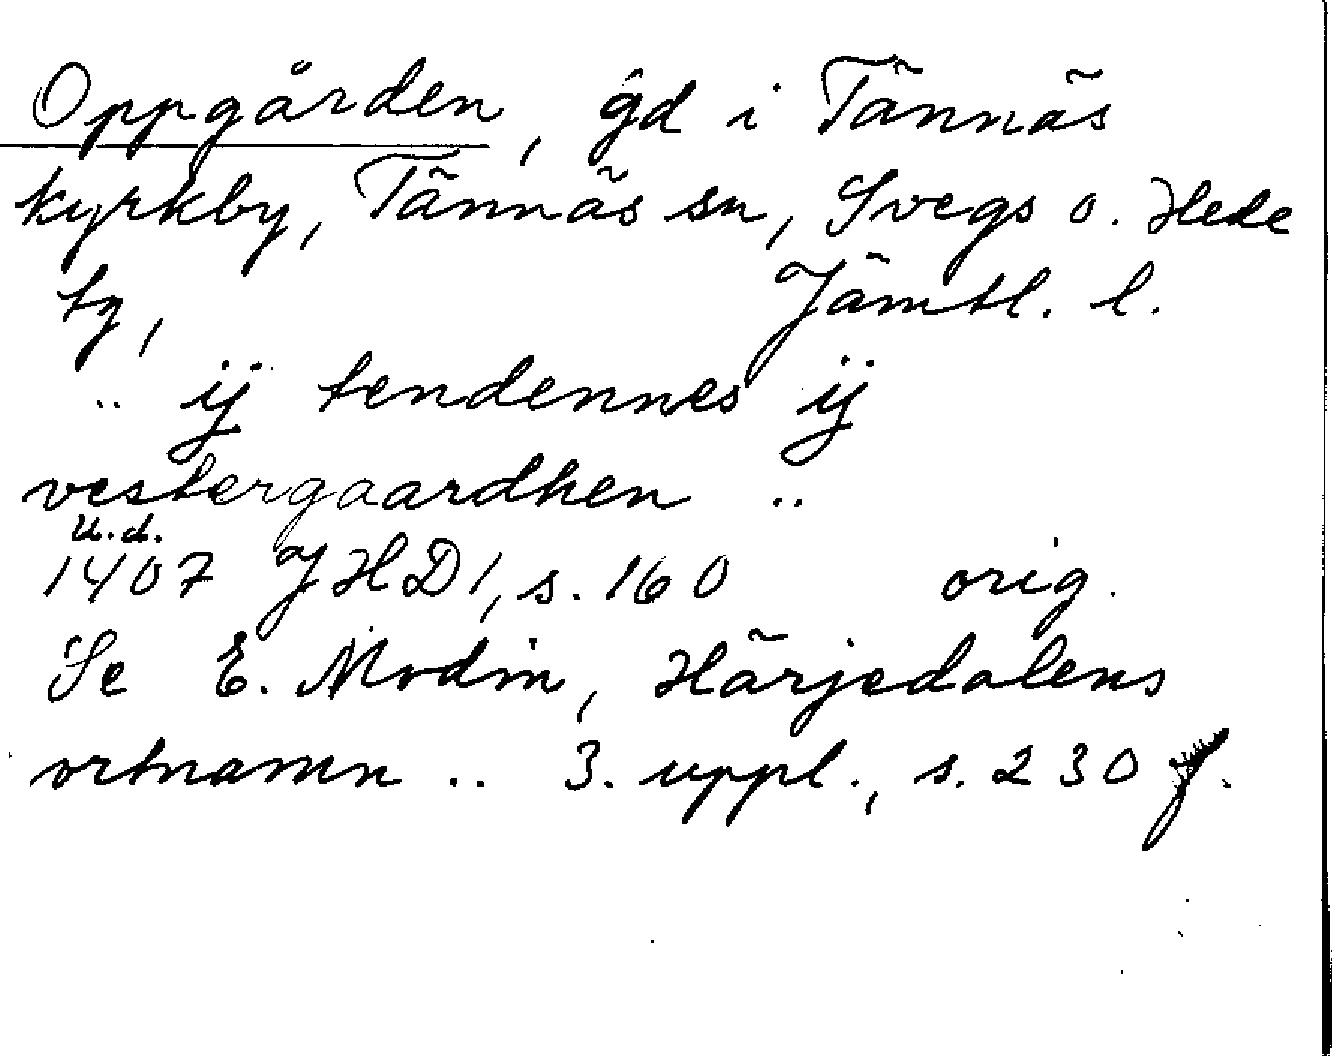 Oppgården, gd i Tännäs
kyrkby, Tännäs sn, Svegs o. Hede
tg, Jämtl. l.
.. ij tendennes ij
vestergaardhen ..
u.d.
1407 JHD 1, s. 160 orig.
Se E. Modin, Härjedalens
ortnamn .. 3. uppl., s. 230 f.